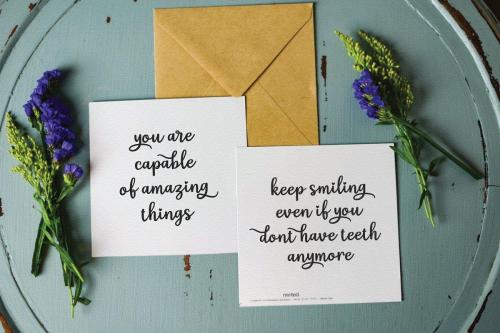 you are
capable
of amazing
things
keep smiling
even if you
dont have teeth
anymore